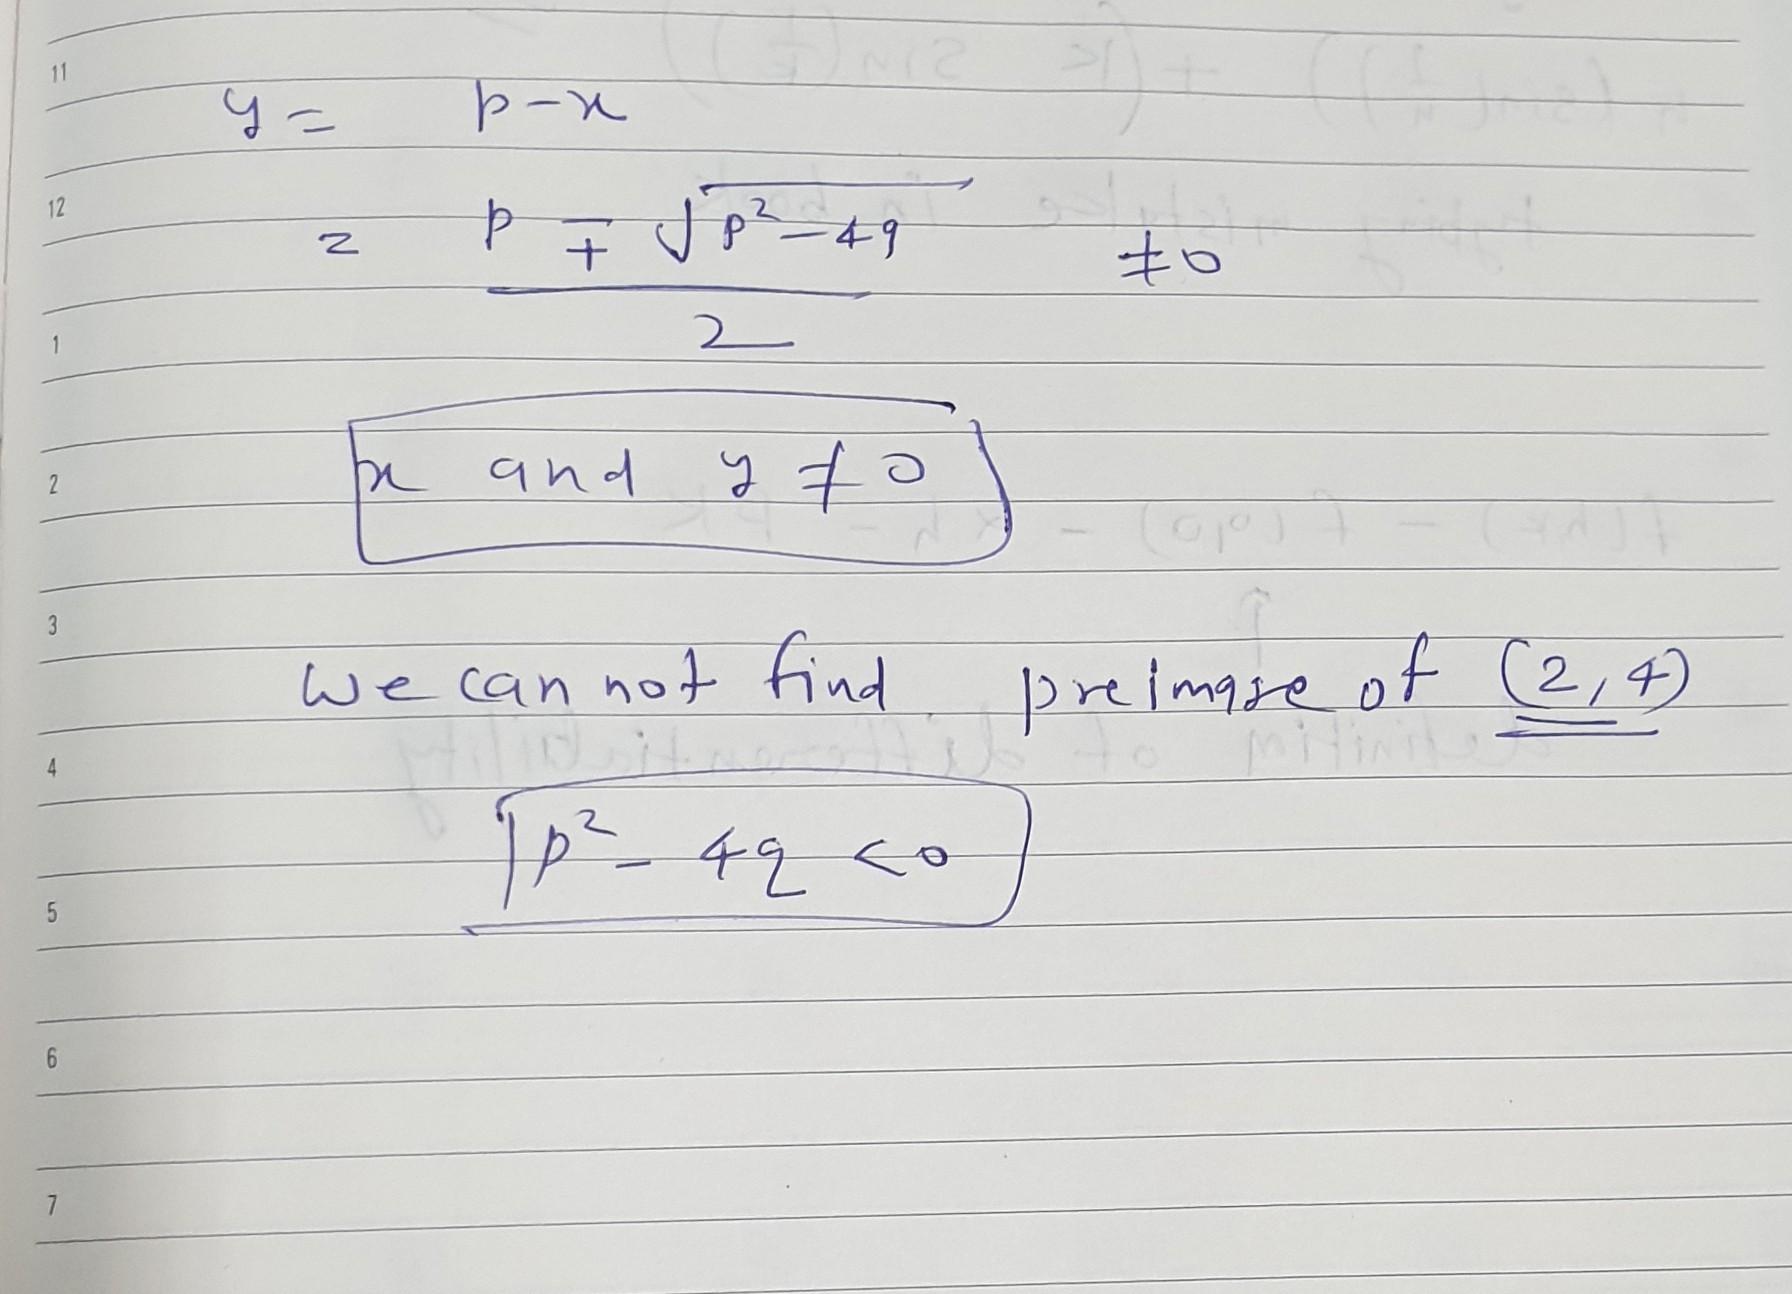 11
y = p-x
12
= p ∓ √p²-4q ≠0
1
2
2
x and y ≠ 0
3
We can not find preimage of (2,4)
4
p² - 4q <0
5
6
7